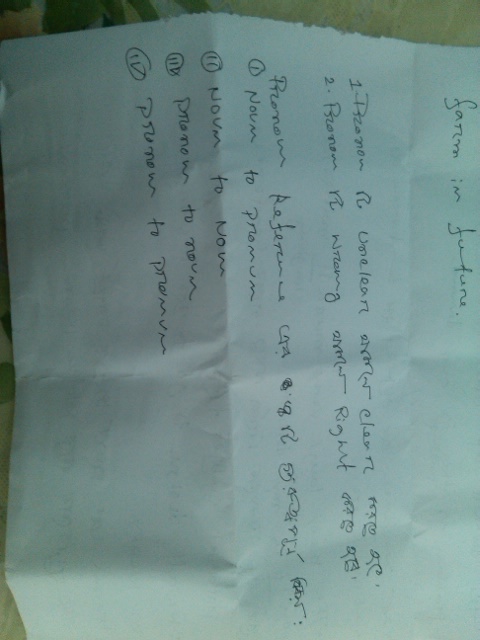 farm in future.
1. Pronoun টি Unclear থাকলে clear করতে হবে।
2. Pronoun টি wrong থাকলে Right করতে হবে।
Pronoun Reference
① Noun to pronoun
② Noun to Noun
③ pronoun to noun
④ pronoun to pronoun